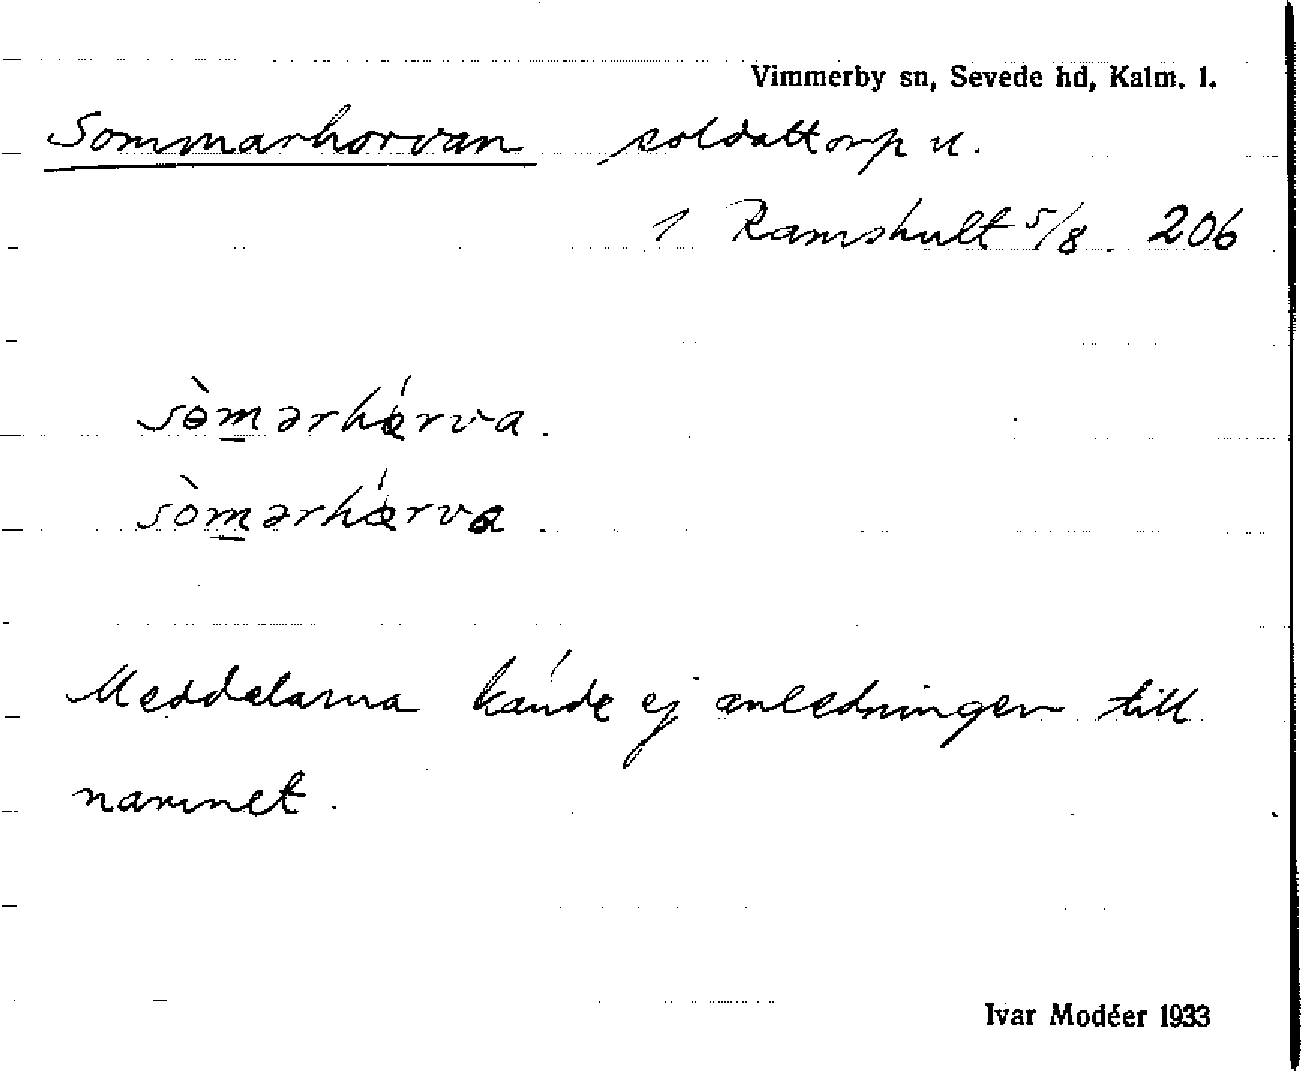 Vimmerby sn, Sevede hd, Kalm. l.
Sommarhorvan soldattorp u.
1 Ramshult 5/8 206
sòm̲ərhə́rva.
sòm̲ərhə́rva.
Meddelarna kände ej anledningen till
namnet.
Ivar Modéer 1933